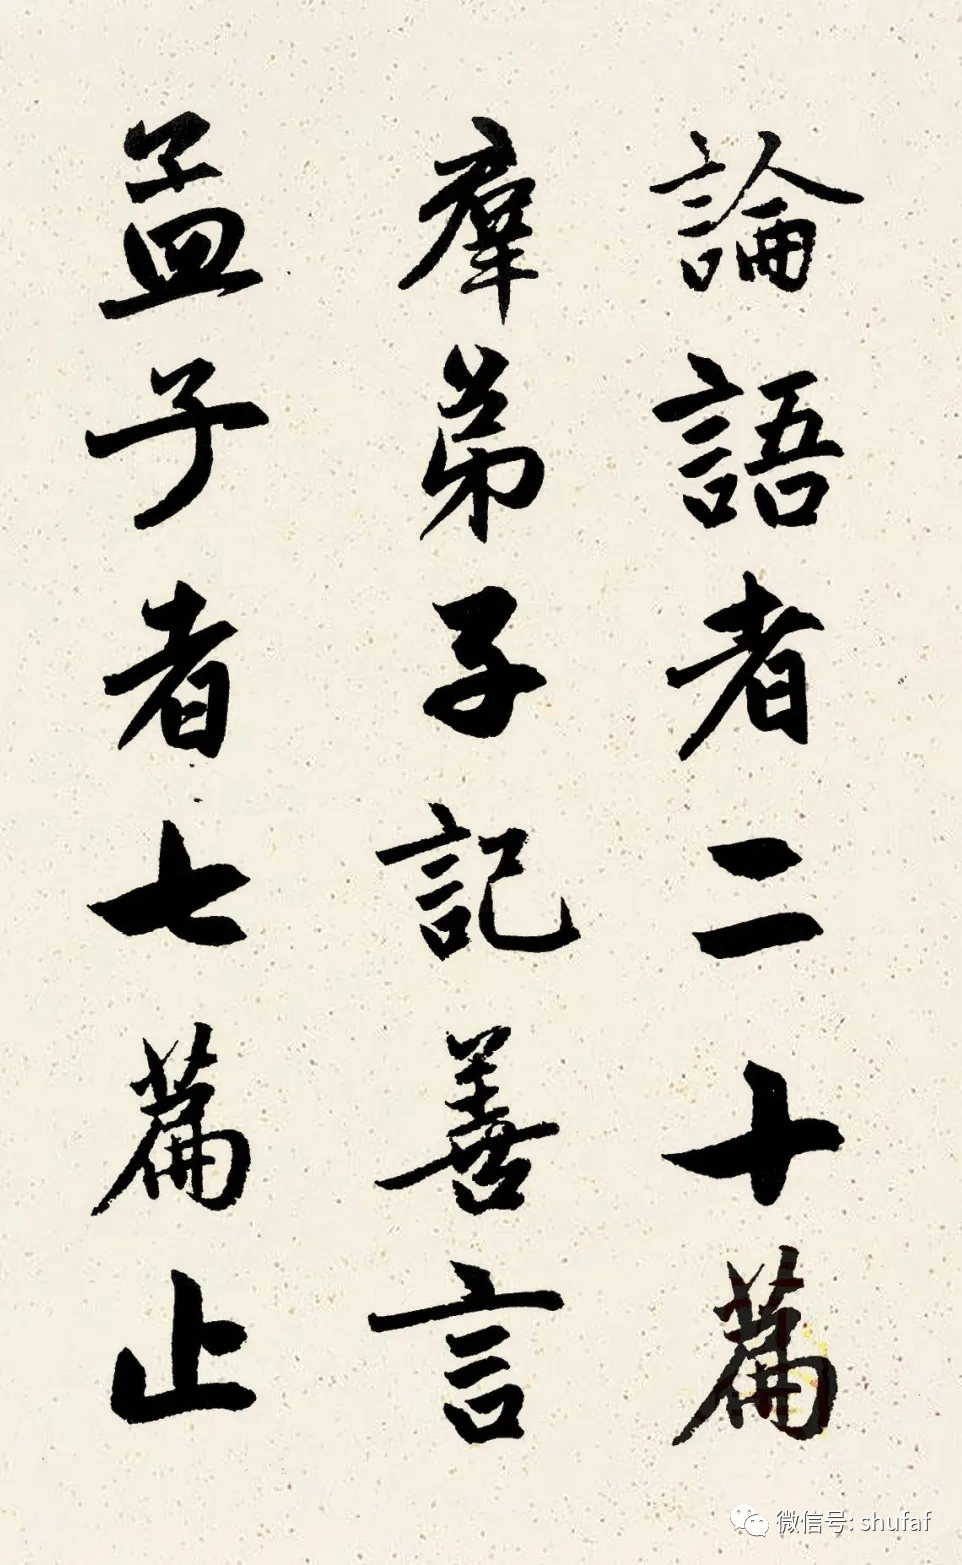 論語者二十篇
羣弟子記善言
孟子者七篇止
微信号: shufaf